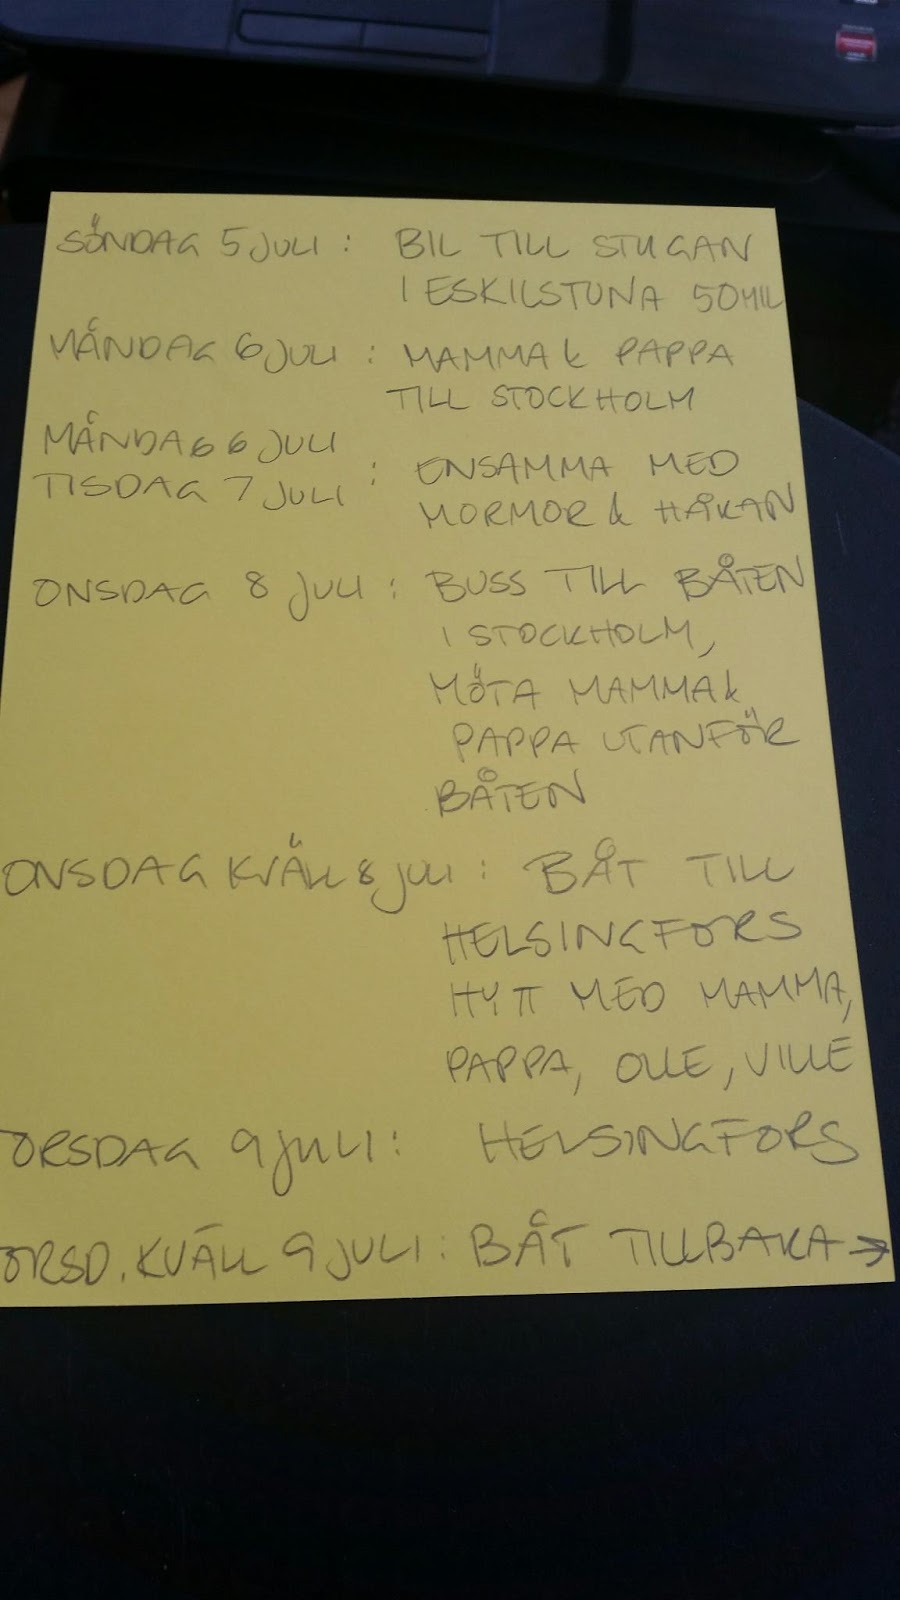 SÖNDAG 5 JULI : BIL TILL STUGAN
I ESKILSTUNA 50 MIL
MÅNDAG 6 JULI : MAMMA & PAPPA
TILL STOCKHOLM
MÅNDAG 6 JULI
TISDAG 7 JULI : ENSAMMA MED
MORMOR & HÅKAN
ONSDAG 8 JULI : BUSS TILL BÅTEN
I STOCKHOLM,
MÖTA MAMMA &
PAPPA UTANFÖR
BÅTEN
ONSDAG KVÄLL 8 JULI : BÅT TILL
HELSINGFORS
HYTT MED MAMMA,
PAPPA, OLLE, VILLE
TORSDAG 9 JULI : HELSINGFORS
TORSD. KVÄLL 9 JULI : BÅT TILLBAKA →